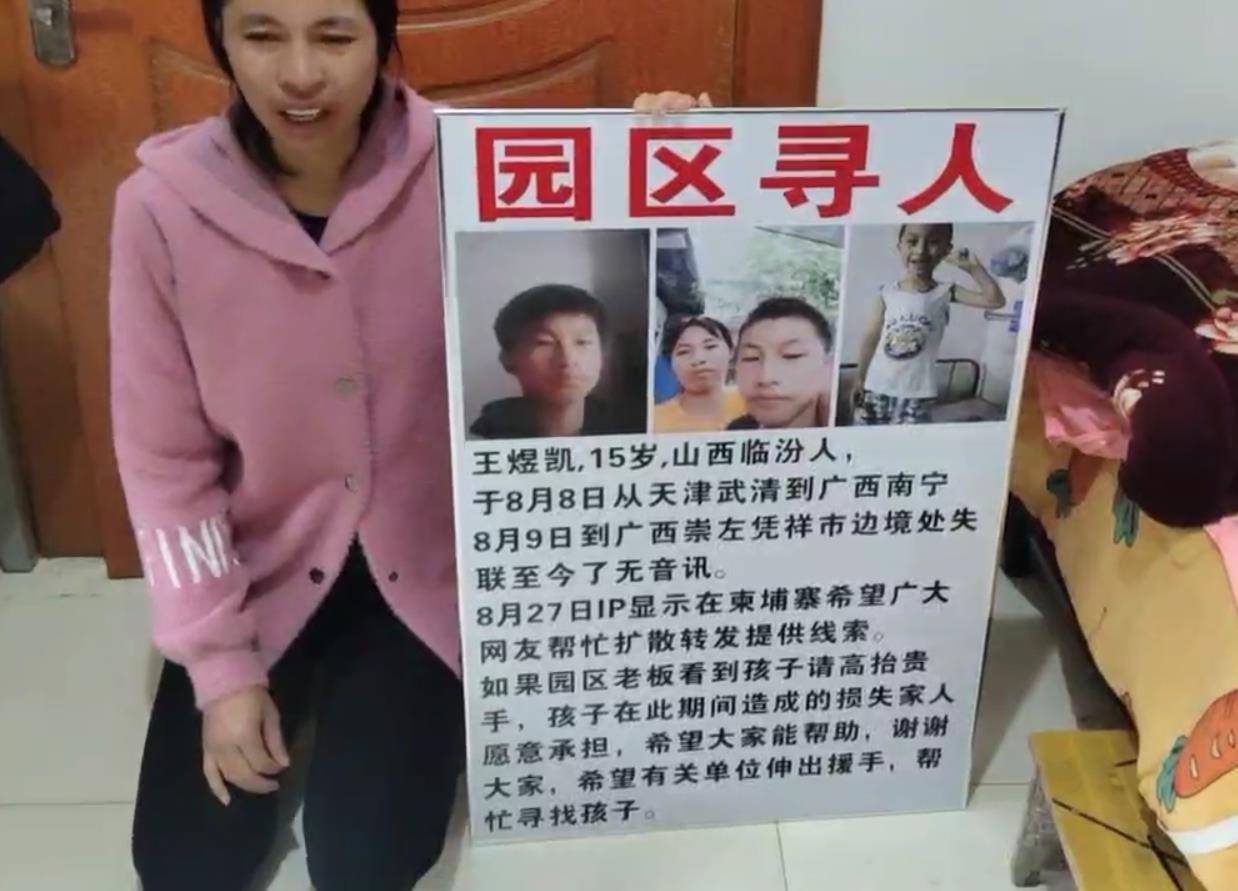 园区寻人
王煜凯,15岁,山西临汾人，
于8月8日从天津武清到广西南宁
8月9日到广西崇左凭祥市边境处失
联至今了无音讯。
8月27日IP显示在柬埔寨希望广大
网友帮忙扩散转发提供线索。
如果园区老板看到孩子请高抬贵
手，孩子在此期间造成的损失家人
愿意承担，希望大家能帮助，谢谢
大家，希望有关单位伸出援手，帮
忙寻找孩子。